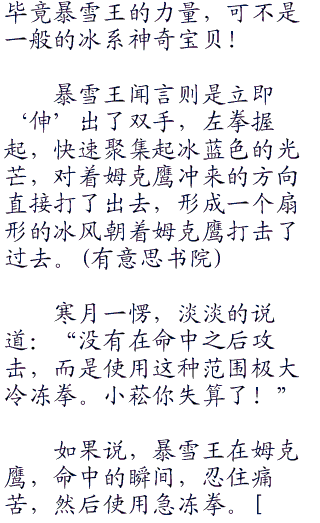 毕竟暴雪王的力量，可不是
一般的冰系神奇宝贝！
暴雪王闻言则是立即
‘伸’出了双手，左拳握
起，快速聚集起冰蓝色的光
芒，对着姆克鹰冲来的方向
直接打了出去，形成一个扇
形的冰风朝着姆克鹰打击了
过去。(有意思书院)
寒月一愣，淡淡的说
道：“没有在命中之后攻
击，而是使用这种范围极大
冷冻拳。小菘你失算了！”
如果说，暴雪王在姆克
鹰，命中的瞬间，忍住痛
苦，然后使用急冻拳。[